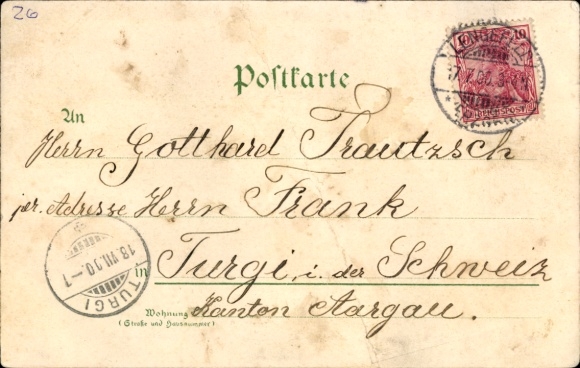 26
Postkarte
An
Herrn Gotthard Trautzsch
per. Adresse Herrn Frank
in Turgi, i. der Schweiz
Wohnung Kanton Aargau.
(Straße und Hausnummer)
10 10
REICHSPOST
18.VII.00.–7
TURGI